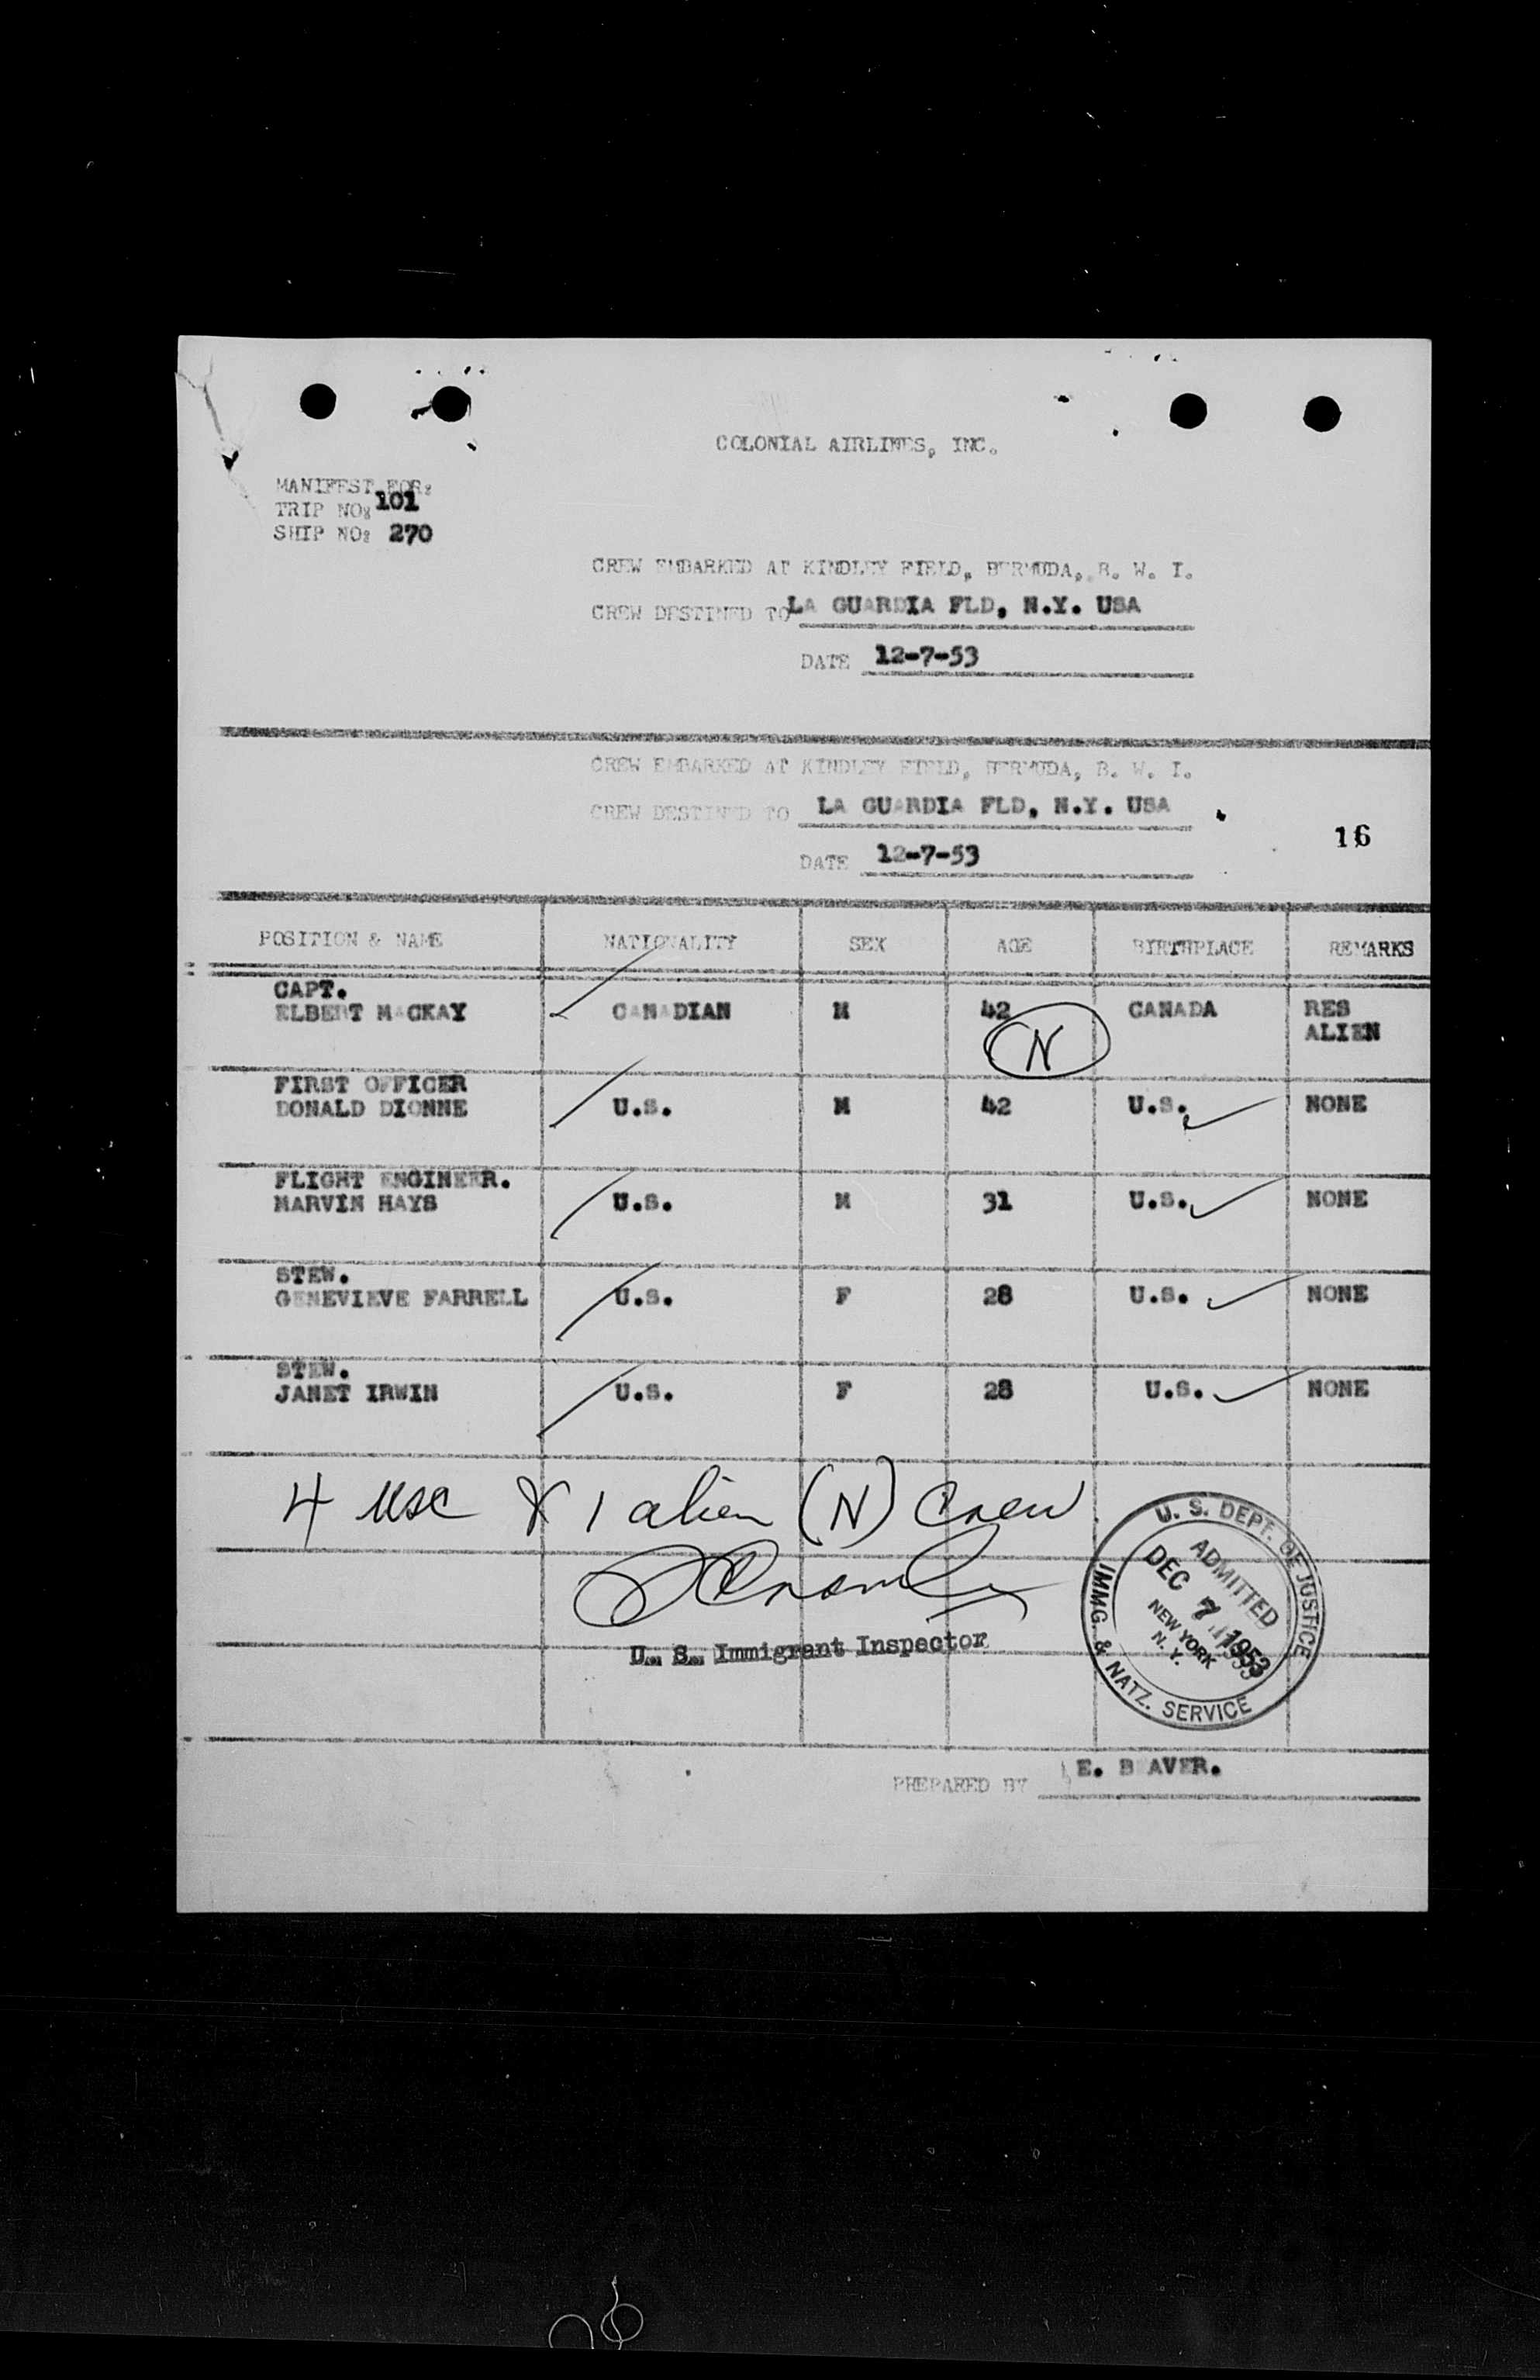 COLONIAL AIRLINES, INC.
MANIFEST FOR:
TRIP NO: 101
SHIP NO: 270
CREW EMBARKED AT KINDLEY FIELD, BERMUDA, B. W. I.
CREW DESTINED TO LA GUARDIA FLD, N.Y. USA
DATE 12-7-53
CREW EMBARKED AT KINDLEY FIELD, BERMUDA, B. W. I.
CREW DESTINED TO LA GUARDIA FLD, N.Y. USA
16
DATE 12-7-53
POSITION & NAME NATIONALITY SEX AGE BIRTHPLACE REMARKS
CAPT.
ELBERT MACKAY CANADIAN M 42 CANADA RES
ALIEN
N
FIRST OFFICER
DONALD DIONNE U.S. M 42 U.S. NONE
FLIGHT ENGINEER.
MARVIN HAYS U.S. M 31 U.S. NONE
STEW.
GENEVIEVE FARRELL U.S. F 28 U.S. NONE
STEW.
JANET IRWIN U.S. F 28 U.S. NONE
4 USC & 1 alien (N) Crew
U. S. Immigrant Inspector
U. S. DEPT. OF JUSTICE
ADMITTED
DEC 7 1953
NEW YORK
N. Y.
IMMG. & NATZ. SERVICE
PREPARED BY E. BEAVER.